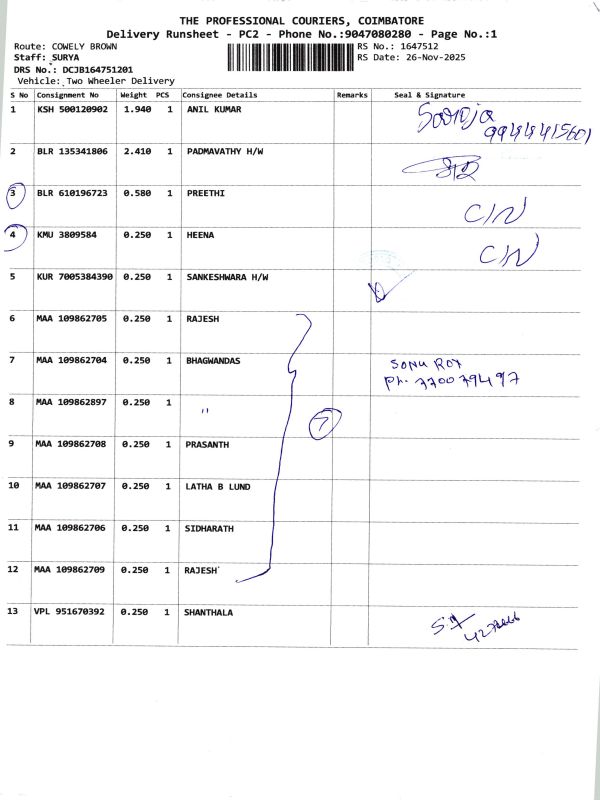 THE PROFESSIONAL COURIERS, COIMBATORE
Delivery Runsheet - PC2 - Phone No.:9047080280 - Page No.:1
Route: COWELY BROWN RS No.: 1647512
Staff: SURYA RS Date: 26-Nov-2025
DRS No.: DCJB164751201
Vehicle: Two Wheeler Delivery
S No Consignment No Weight PCS Consignee Details Remarks Seal & Signature
1 KSH 500120902 1.940 1 ANIL KUMAR Saroja
2 BLR 135341806 2.410 1 PADMAVATHY H/W
3 BLR 610196723 0.580 1 PREETHI C/N
4 KMU 3809584 0.250 1 HEENA C/N
5 KUR 7005384390 0.250 1 SANKESHWARA H/W
6 MAA 109862705 0.250 1 RAJESH
7 MAA 109862704 0.250 1 BHAGWANDAS SONU ROY
Ph. 7700794497
8 MAA 109862897 0.250 1 " 7
9 MAA 109862708 0.250 1 PRASANTH
10 MAA 109862707 0.250 1 LATHA B LUND
11 MAA 109862706 0.250 1 SIDHARATH
12 MAA 109862709 0.250 1 RAJESH
13 VPL 951670392 0.250 1 SHANTHALA